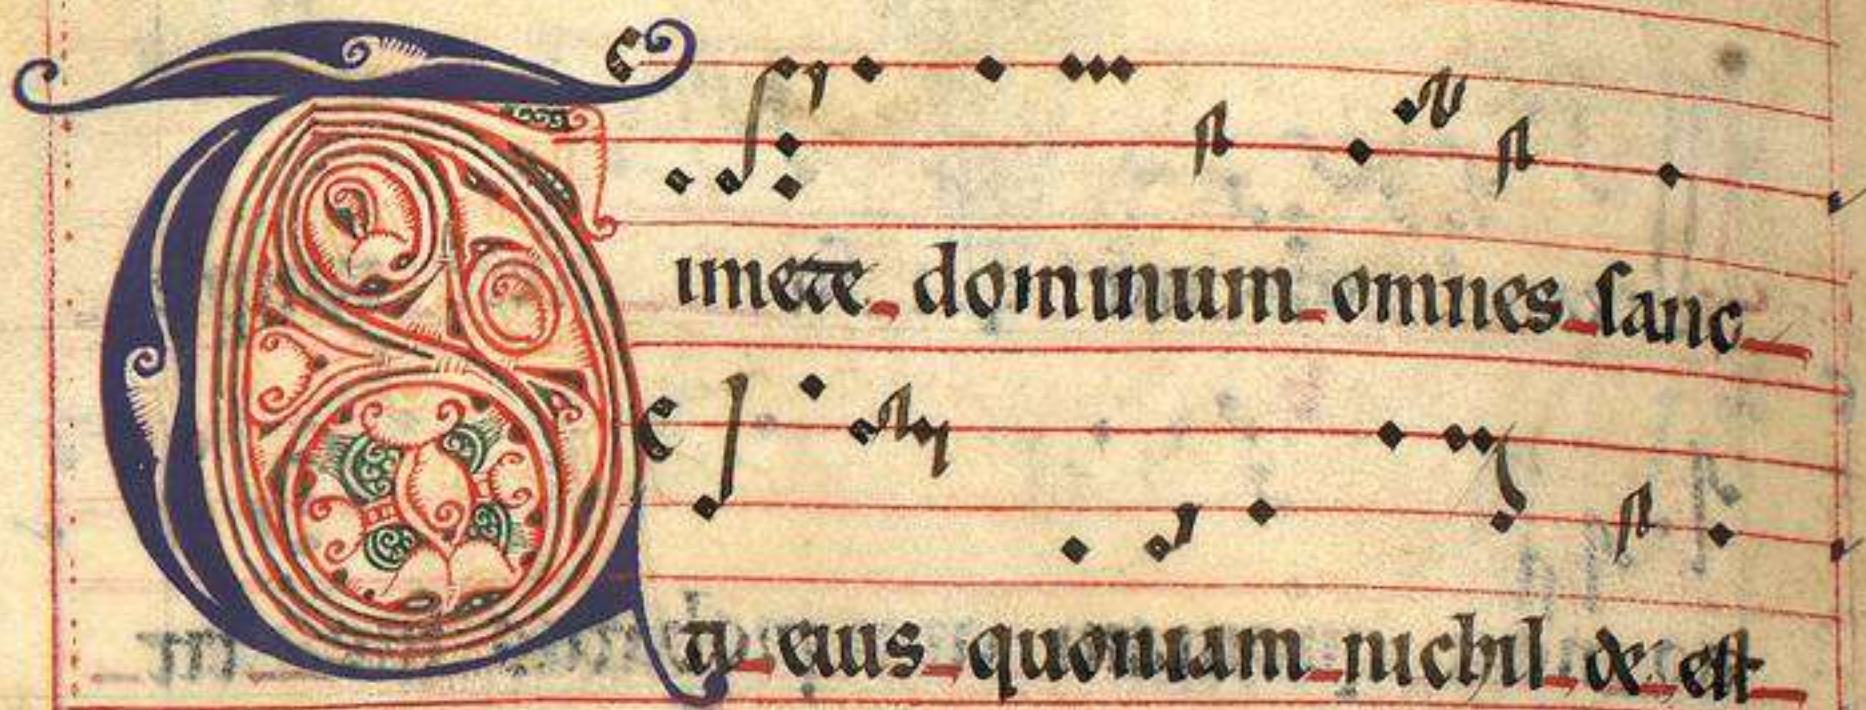 Timete dominum omnes sanc
ti eius quoniam nichil de est